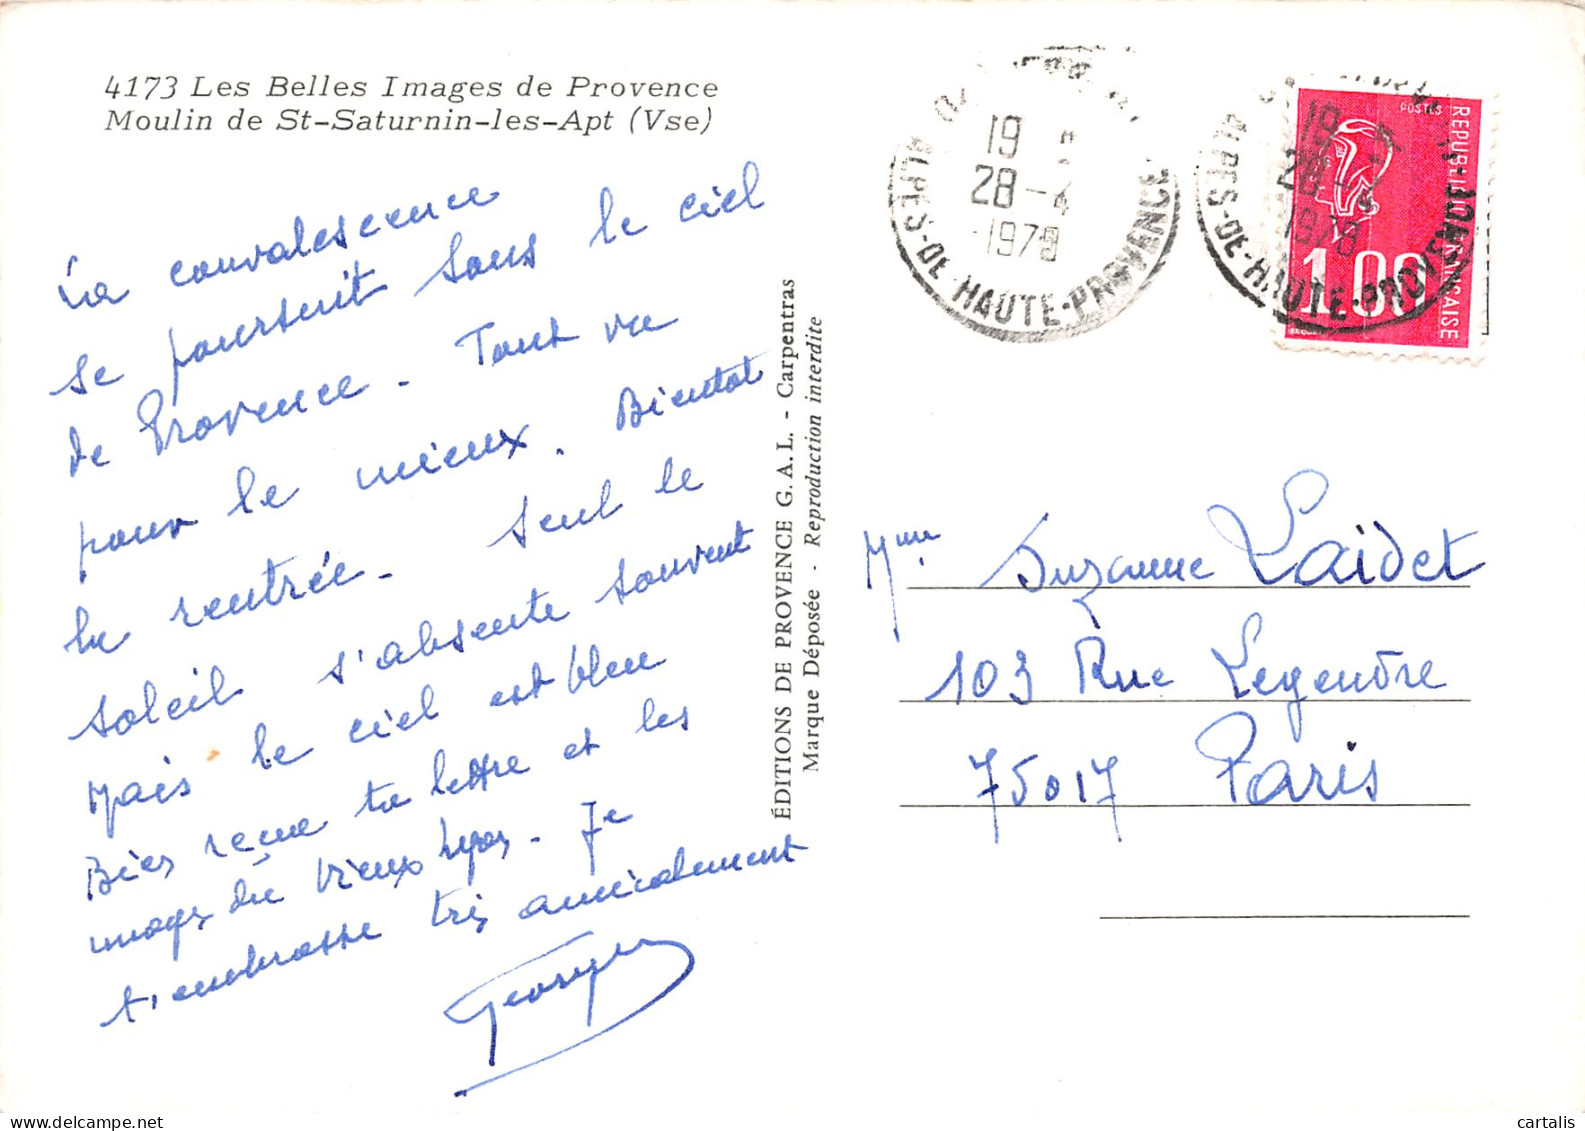 4173 Les Belles Images de Provence
Moulin de St-Saturnin-les-Apt (Vse)
La convalescence
se poursuit sous le ciel
de Provence - Tout va
pour le mieux. Bientot
la rentrée - Seul le
soleil s'absente souvent
Mais le ciel est bleu
Bien reçue ta lettre et les
images du vieux Lyon - Je
t'embrasse très amicalement
ÉDITIONS DE PROVENCE G. A. L. - Carpentras
Marque Déposée - Reproduction interdite
19
28-4
1978
ALPES-DE-HAUTE-PROVENCE
19
28-4
1978
ALPES-DE-HAUTE-PROVENCE
POSTES
REPUBLIQUE FRANÇAISE
1.00
Mme Suzanne Laïdet
103 Rue Legendre
75017 Paris
cartalis